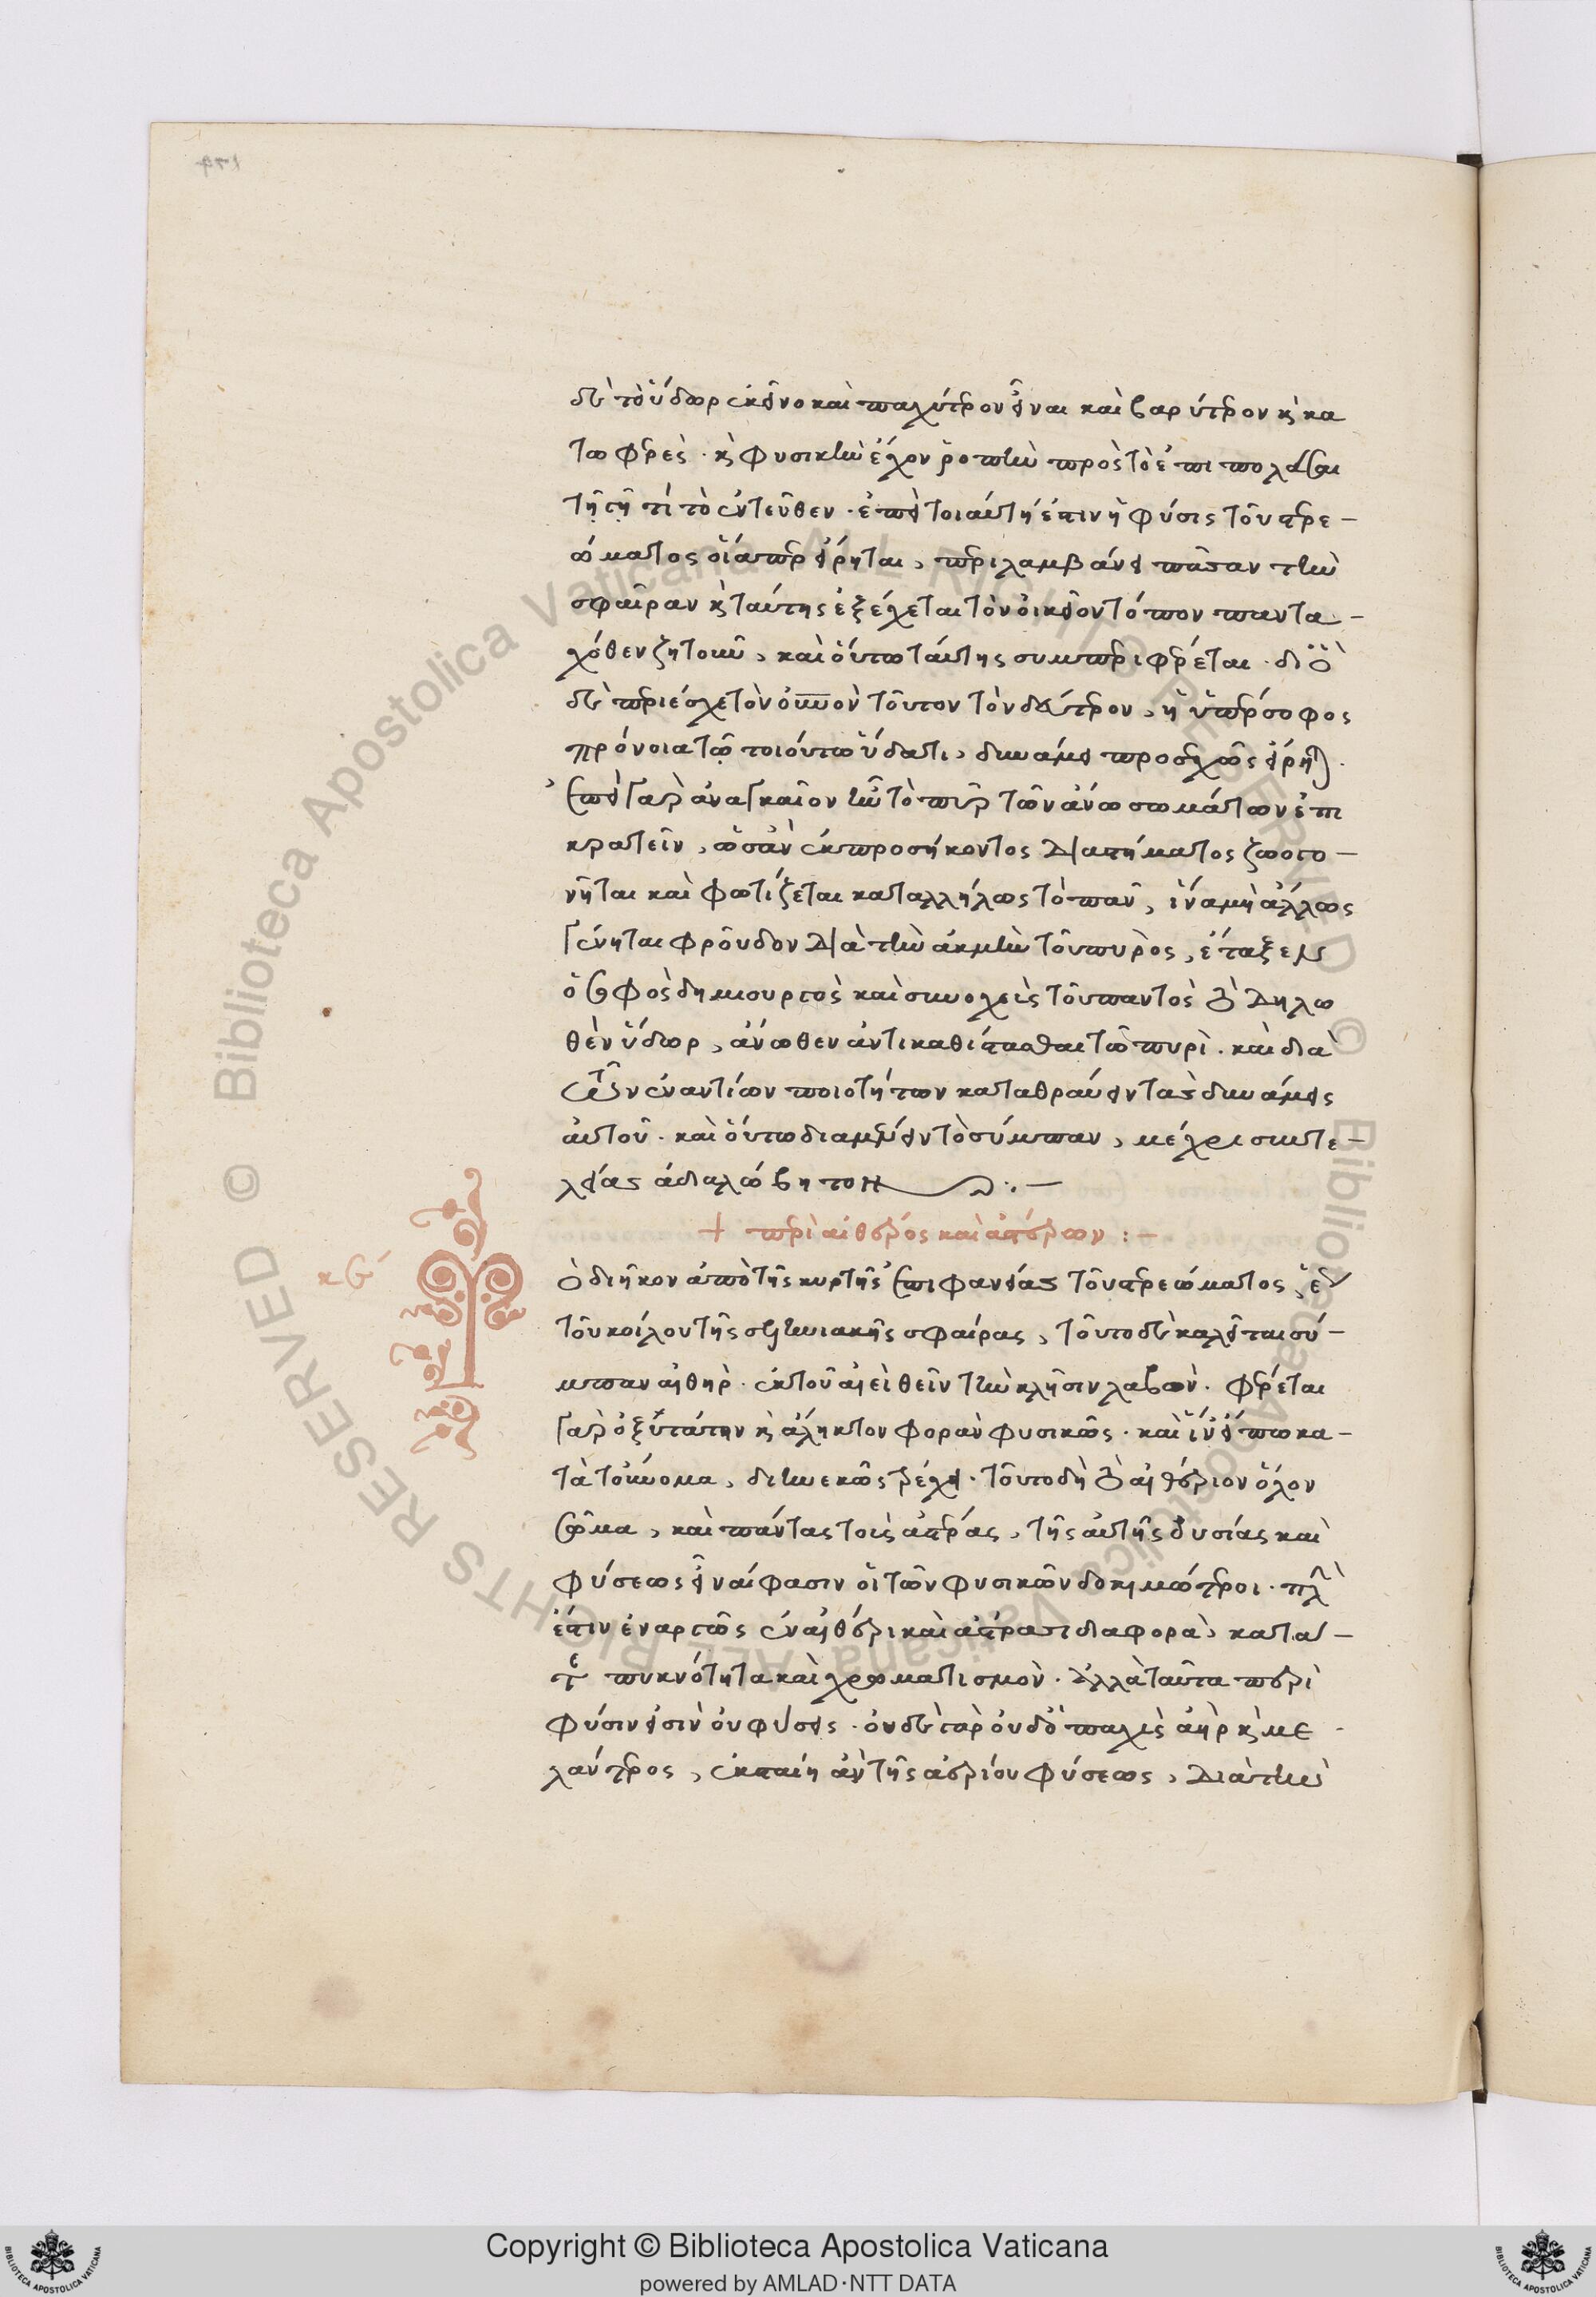 δὲ τὸ ὕδωρ ἐκεῖνο καὶ παχύτερον εἶναι καὶ βαρύτερον κ κα
τωφερὲς. κ φυσικὴν ἔχον ῥοπὴν πρὸς τὸ ἐπιπολάσαι
τῇ γῇ τί τὸ ἐντεῦθεν. ἐπεὶ τοιαύτη ἐστιν ἡ φύσις τοῦ στερε-
ώματος οἵαπερ εἴρηται, περιλαμβάνει πᾶσαν τὴν
σφαῖραν κ ταύτης ἐξέχεται τὸν οἰκεῖον τόπον παντα-
χόθεν ζητοῦν, καὶ οὕτω ταύτης συμπεριφέρεται. διὸ
δὲ περιέσχε τὸν οὐνον τοῦτον τὸν δεύτερον, ἡ ὑπέρσοφος
πρόνοια τῷ τοιούτω ὕδατι, δυνάμει προσεχῶς εἴρηται.
ἐπεὶ γὰρ ἀναγκαῖον ἦν τὸ πῦρ τῶν ἄνω σωμάτων ἐπι
κρατεῖν, ὡσὰν ἐκ προσήκοντος διαστήματος ζωογο-
νῆται καὶ φωτίζεται καταλλήλως τὸ πᾶν, ἵνα μὴ ἄλλως
γένηται φροῦδον διὰ τὴν ἀκμὴν τοῦ πυρὸς, ἔταξεν
ὁ σοφὸς δημιουργὸς καὶ συνοχεὺς τοῦ παντὸς τὸ δηλω
θὲν ὕδωρ, ἄνωθεν ἀντικαθίστασθαι τῶ πυρὶ. καὶ διὰ
τῶν ἐναντίων ποιοτήτων καταθραύειν τὰς δυνάμεις
αὐτοῦ. καὶ οὕτω διαμένειν τὸ σύμπαν, μέχρι συντε-
λείας ἀδιαλώβητον :. —
+ περὶ αἰθέρος καὶ ἀστέρων : —
κϛ΄
Τὸ διῆκον ἀπὸ τῆς κυρτῆς ἐπιφανείας τοῦ στερεώματος, ἕως
τοῦ κοίλου τῆς σεληνιακῆς σφαίρας, τοῦτο δὲ καλεῖται σύ-
μπαν αἰθὴρ. ἐκ τοῦ ἀεὶ θεῖν τὴν κλῆσιν λαβὼν. φέρεται
γὰρ ὀξυτάτην κ ἄληκτον φορὰν φυσικῶς. καὶ ἵν' εἴπω κα-
τὰ τοὔνομα, διηνεκῶς τρέχει. τοῦτο δὴ τὸ αἰθέριον ὅλον
σῶμα, καὶ πάντας τοὺς ἀστέρας, τῆς αὐτῆς οὐσίας καὶ
φύσεως εἶναί φασιν οἱ τῶν φυσικῶν δοκιμώτεροι. πλὴν
ἔστιν ἐναργῶς ἐν αἰθέρι καὶ ἀστράσι διαφορὰ, κατα
τε πυκνότητα καὶ χρωματισμὸν. ἀλλὰ ταῦτα περὶ
φύσιν εἰσὶν οὐ φύσεις. οὐδὲ γὰρ οὐδ' ὁ παχὺς ἀὴρ κ με
λάντερος, ἐκσταίη ἂν τῆς ἀερίου φύσεως, διὰ τὴν